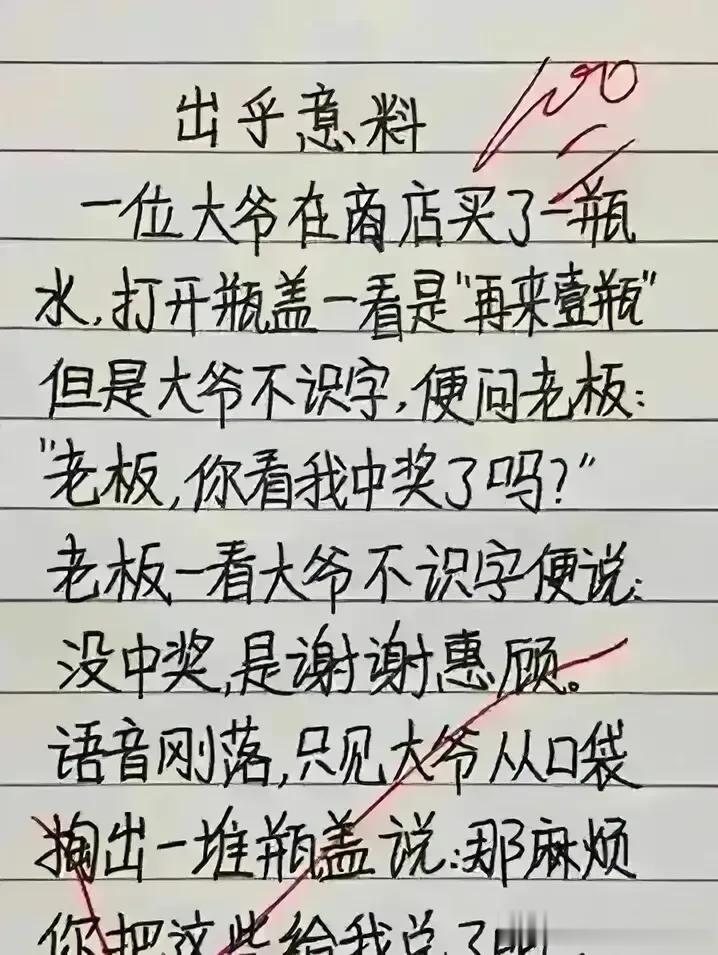 出乎意料
100
一位大爷在商店买了一瓶
水,打开瓶盖一看是"再来壹瓶"
但是大爷不识字,便问老板:
"老板,你看我中奖了吗?"
老板一看大爷不识字便说:
没中奖,是谢谢惠顾。
语音刚落,只见大爷从口袋
掏出一堆瓶盖说:那麻烦
你把这些给我兑了